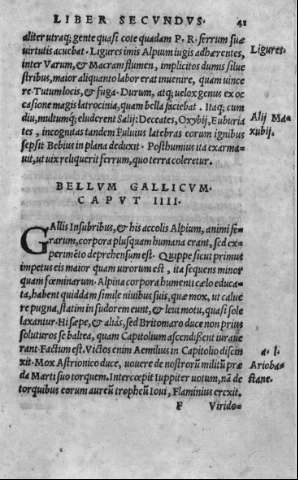 LIBER SECVNDVS.
41
aliter utraq; gente quasi cote quadam P. R. ferrum suæ
uirtutis acuebat. Ligures imis Alpium iugis adhærentes,
Ligures.
inter Varum, & Macram flumen, implicitos dumis silue
stribus, maior aliquanto labor erat inuenire, quam uince
re. Tutum locis, & fuga. Durum, atq; uelox genus ex oc
casione magis latrocinia, quam bella faciebat. Itaq; cum
diu, multumq; eluderent Salij: Deceates, Oxybij, Euburia
Alij Ma-
xubij.
tes, incognitas tandem Fuluius latebras eorum ignibus
sepsit Bebius in plana deduxit. Posthumius ita exarma-
uit, ut uix reliquerit ferrum, quo terra coleretur.
BELLVM GALLICVM.
CAPVT IIII.
GAllis Insubribus, & his accolis Alpium, animi fe-
rarum, corpora plusquam humana erant, sed ex-
perimēto deprehensum est. Quippe sicut primus
impetus eis maior quam uirorum est, ita sequens minor
quam fœminarum. Alpina corpora humenti cælo educa-
ta, habent quiddam simile niuibus suis, quæ mox, ut calue
re pugna, statim in sudorem eunt, & leui motu, quasi sole
laxantur. Hi sepe, & aliâs, sed Britomaro duce non prius
soluturos se baltea, quam Capitolium ascendissent iuraue
rant. Factum est. Victos enim Aemilius in Capitolio discin
a. l.
Ariobar
stane.
xit. Mox Astrionico duce, uouere de nostrorū militū præ
da Marti suo torquem. Intercœpit Iuppiter uotum, nā de
torquibus eorum aureū tropheū Ioui, Flaminius erexit.
F
Virido-